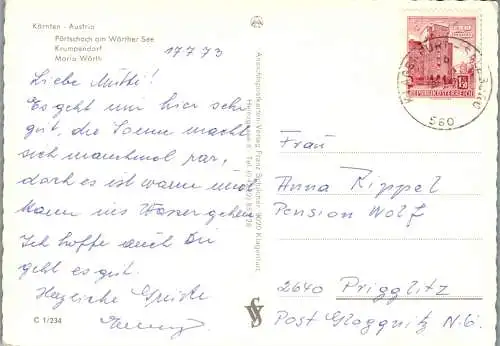 Kärnten - Austria
Pörtschach am Wörther See
Krumpendorf
Maria Wörth
17 7 73
Liebe Mutti!
Es geht uns hier sehr
gut, die Sonne macht
sich manchmal rar,
doch es ist warm und
kann ins Wasser gehen
Ich hoffe auch Dir
geht es gut.
Herzliche Grüße
C 1/234
Ansichtskarten-Verlag Franz Schilcher, 9020 Klagenfurt,
REPUBLIK ÖSTERREICH
KLAGENFURT
Frau
Anna Rippel
Pension Wolf
2640 Prigglitz
Post Gloggnitz N.Ö.